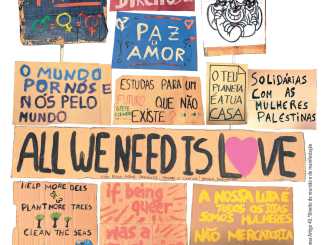 PAZ
AMOR
O MUNDO
POR NÓS E
NÓS PELO
MUNDO
ESTUDAS PARA UM
FUTURO
QUE NÃO
EXISTE?
O TEU
PLANETA
É A TUA
CASA
SOLIDÁRIAS
COM AS
MULHERES
PALESTINAS
ALL WE NEED IS LOVE
HELP MORE BEES
PLANT MORE TREES
CLEAN THE SEAS
If being
queer
was a
A NOSSA LUTA É
TODOS OS DIAS
SOMOS MULHERES
NÃO MERCADORIA